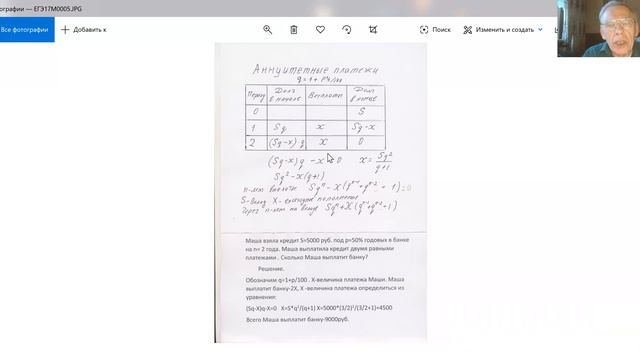 ографии — ЕГЭ17М0005.JPG
Все фотографии
Добавить к
Поиск
Изменить и создать
Аннуитетные платежи
q=1+p%/100
Период Долг в начале Выплаты Долг в конце
0 S
1 Sq x Sq-x
2 (Sq-x)q x 0
(Sq-x)q -x 0 x= Sq²/q+1
Sq²-x(q+1)
n-лет выплаты Sqⁿ-x(qⁿ⁻¹+qⁿ⁻²+ 1)=0
S-вклад X-ежегодн пополнение
Через n-лет на вкладе Sqⁿ+X(qⁿ⁻¹+qⁿ⁻²+1)
Маша взяла кредит S=5000 руб. под p=50% годовых в банке
на n= 2 года. Маша выплатила кредит двумя равными
платежами . Сколько Маша выплатит банку?
Решение.
Обозначим q=1+p/100 . X-величина платежа Маши. Маша
выплатит банку-2X, X -величина платежа определиться из
уравнения:
(Sq-X)q-X=0 X=S*q²/(q+1) X=5000*(3/2)²/(3/2+1)=4500
Всего Маша выплатит банку-9000руб.